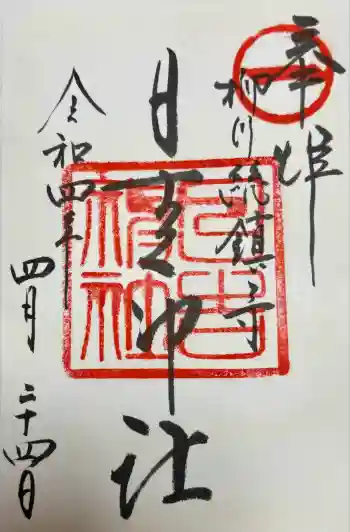 奉拝
柳川総鎮守
日吉神社
令和四年
四月二十四日
日吉神社